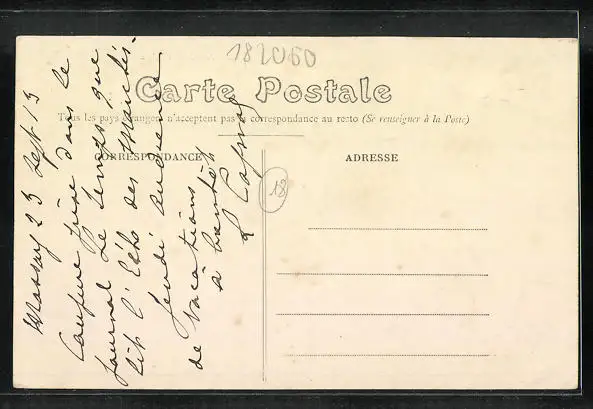 182060
Carte Postale
Tous les pays étrangers n'acceptent pas la correspondance au recto (Se renseigner à la Poste)
CORRESPONDANCE
ADRESSE
18
Massay 23 Sept 13
Coupure prise dans le
journal Le Temps que
lit l'Echo des Marchés.
Jeudi audience
de vacations
à bientôt